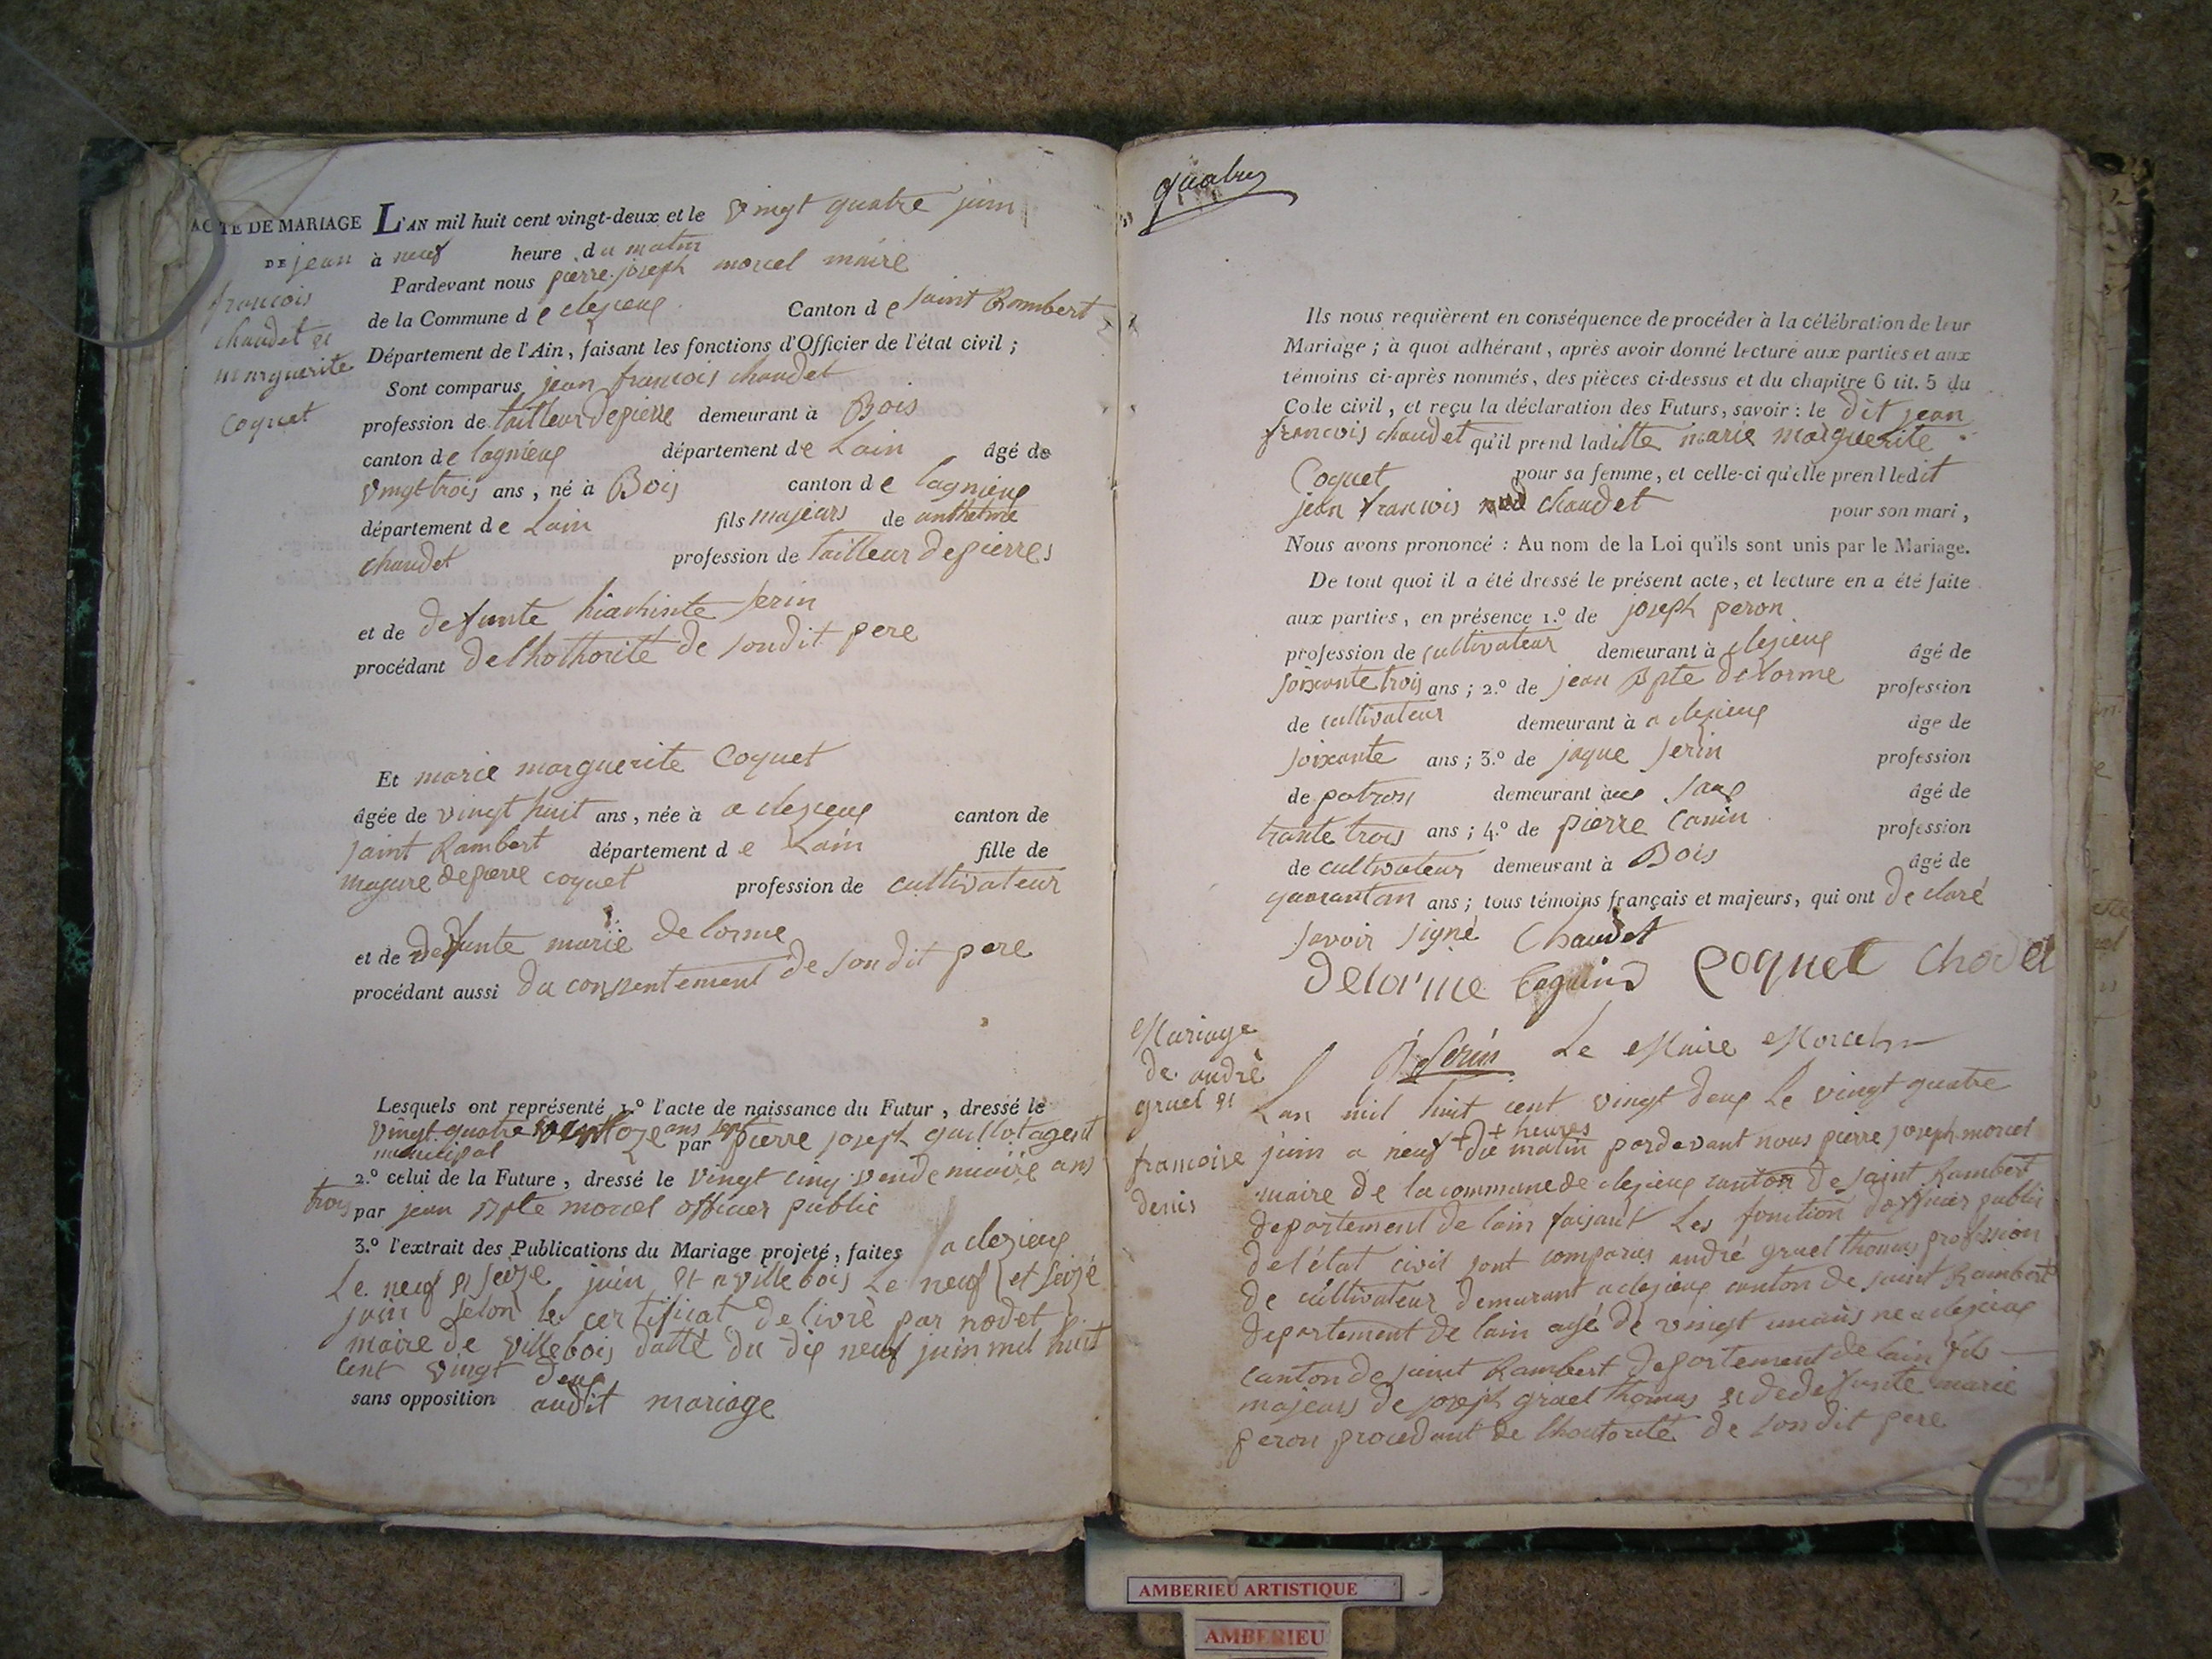 ACTE DE MARIAGE
DE jean
francois
chaudet et
marguerite
Coquet
L'AN mil huit cent vingt-deux et le vingt quatre juin
à neuf heure du matin
Pardevant nous pierre joseph morcel maire
de la Commune de clezieux Canton de saint Rambert
Département de l'Ain, faisant les fonctions d'Officier de l'état civil ;
Sont comparus jean francois chaudet
profession de tailleur de pierre demeurant à Bois
canton de lagnieux département de Lain âgé de
vingt trois ans, né à Bois canton de lagnieux
département de Lain fils majeurs de anthelme
chaudet profession de tailleur de pierres
et de defunte hiachinte serin
procédant de lhothorité de sondit pere
Et marie marguerite Coquet
âgée de vingt huit ans, née à a clezieux canton de
saint Rambert département de Lain fille de
majeure de pierre coquet profession de cultivateur
et de defunte marie delorme
procédant aussi du consentement de son dit pere
Lesquels ont représenté 1.º l'acte de naissance du Futur, dressé le
vingt quatre ventoze ans sept par pierre joseph guillot agent
municipal
2.º celui de la Future, dressé le vingt cinq vendemiaire ans
trois par jean Bpte morcel officier public
3.º l'extrait des Publications du Mariage projeté, faites a clezieux
Le neuf et seize juin et a villebois Le neuf et seize
juin selon le certificat delivré par nodet
maire de villebois datté du dix neuf juin mil huit
cent vingt deux
sans opposition audit mariage
quatre
Ils nous requièrent en conséquence de procéder à la célébration de leur
Mariage ; à quoi adhérant, après avoir donné lecture aux parties et aux
témoins ci-après nommés, des pièces ci-dessus et du chapitre 6 tit. 5 du
Code civil, et reçu la déclaration des Futurs, savoir : le dit jean
francois chaudet qu'il prend laditte marie marguerite
Coquet pour sa femme, et celle-ci qu'elle prend ledit
jean francois chaudet pour son mari,
Nous avons prononcé : Au nom de la Loi qu'ils sont unis par le Mariage.
De tout quoi il a été dressé le présent acte, et lecture en a été faite
aux parties, en présence 1.º de joseph peron
profession de cultivateur demeurant à clezieux âgé de
soixante trois ans ; 2.º de jean Bpte delorme profession
de cultivateur demeurant à a clezieux âgé de
soixante ans ; 3.º de jaque serin profession
de patron demeurant à aux saux âgé de
trante trois ans ; 4.º de pierre Canin profession
de cultivateur demeurant à Bois âgé de
quarantan ans ; tous témoins français et majeurs, qui ont declaré
savoir signé Chaudet
Delorme Coquet Chodet
J Serin Le Maire Morcel
Mariage
de andré
gruel et
francoise
denis
Lan mil huit cent vingt deux Le vingt quatre
juin a neuf + du + heures matin pardevant nous pierre joseph morcel
maire de la commune de clezieux canton de saint Rambert
departement de lain faisant Les fonction dofficier public
de létat civil sont comparus andré gruel thomas profession
de cultivateur demurant a clezieux canton de saint Rambert
departement de lain agé de vingt unans ne a clezieux
canton de saint Rambert departement de lain fils
majeurs de joseph gruel thomas et de defunte marie
peron procedant de lhoutorité de son dit pere
AMBERIEU ARTISTIQUE
AMBERIEU